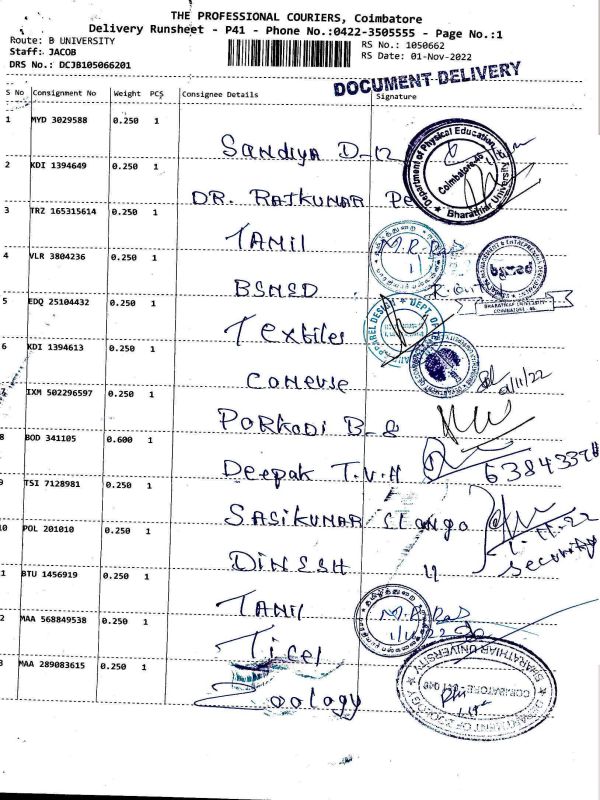 THE PROFESSIONAL COURIERS, Coimbatore
Delivery Runsheet - P41 - Phone No.:0422-3505555 - Page No.:1
Route: B UNIVERSITY
Staff: JACOB
DRS No.: DCJB105066201
RS No.: 1050662
RS Date: 01-Nov-2022
DOCUMENT DELIVERY
S No Consignment No Weight PCS Consignee Details Signature
1 MYD 3029588 0.250 1 Sandiya D-12
Department of Physical Education Coimbatore-46 Bharathiar University
2 KDI 1394649 0.250 1 DR. RAJKUMAR Pe
3 TRZ 165315614 0.250 1 TAMIL
4 VLR 3804236 0.250 1 BSMED
BHARATHIAR UNIVERSITY
COIMBATORE - 46
5 EDQ 25104432 0.250 1 Textiles
APPAREL DESIGN DEPT. OF
6 KDI 1394613 0.250 1 Comeuse
1/11/22
IXM 502296597 0.250 1 PORKODI B-8
8 BOD 341105 0.600 1 Deepak T.V.H
9 TSI 7128981 0.250 1 SASIKUMAR Elango
10 POL 201010 0.250 1 DINESH 4
1.11.22
Security
1 BTU 1456919 0.250 1 TAMIL
2 MAA 568849538 0.250 1 Ticel
3 MAA 289083615 0.250 1 Zoology
DEPARTMENT OF ZOOLOGY BHARATHIAR UNIVERSITY
COIMBATORE 641 046